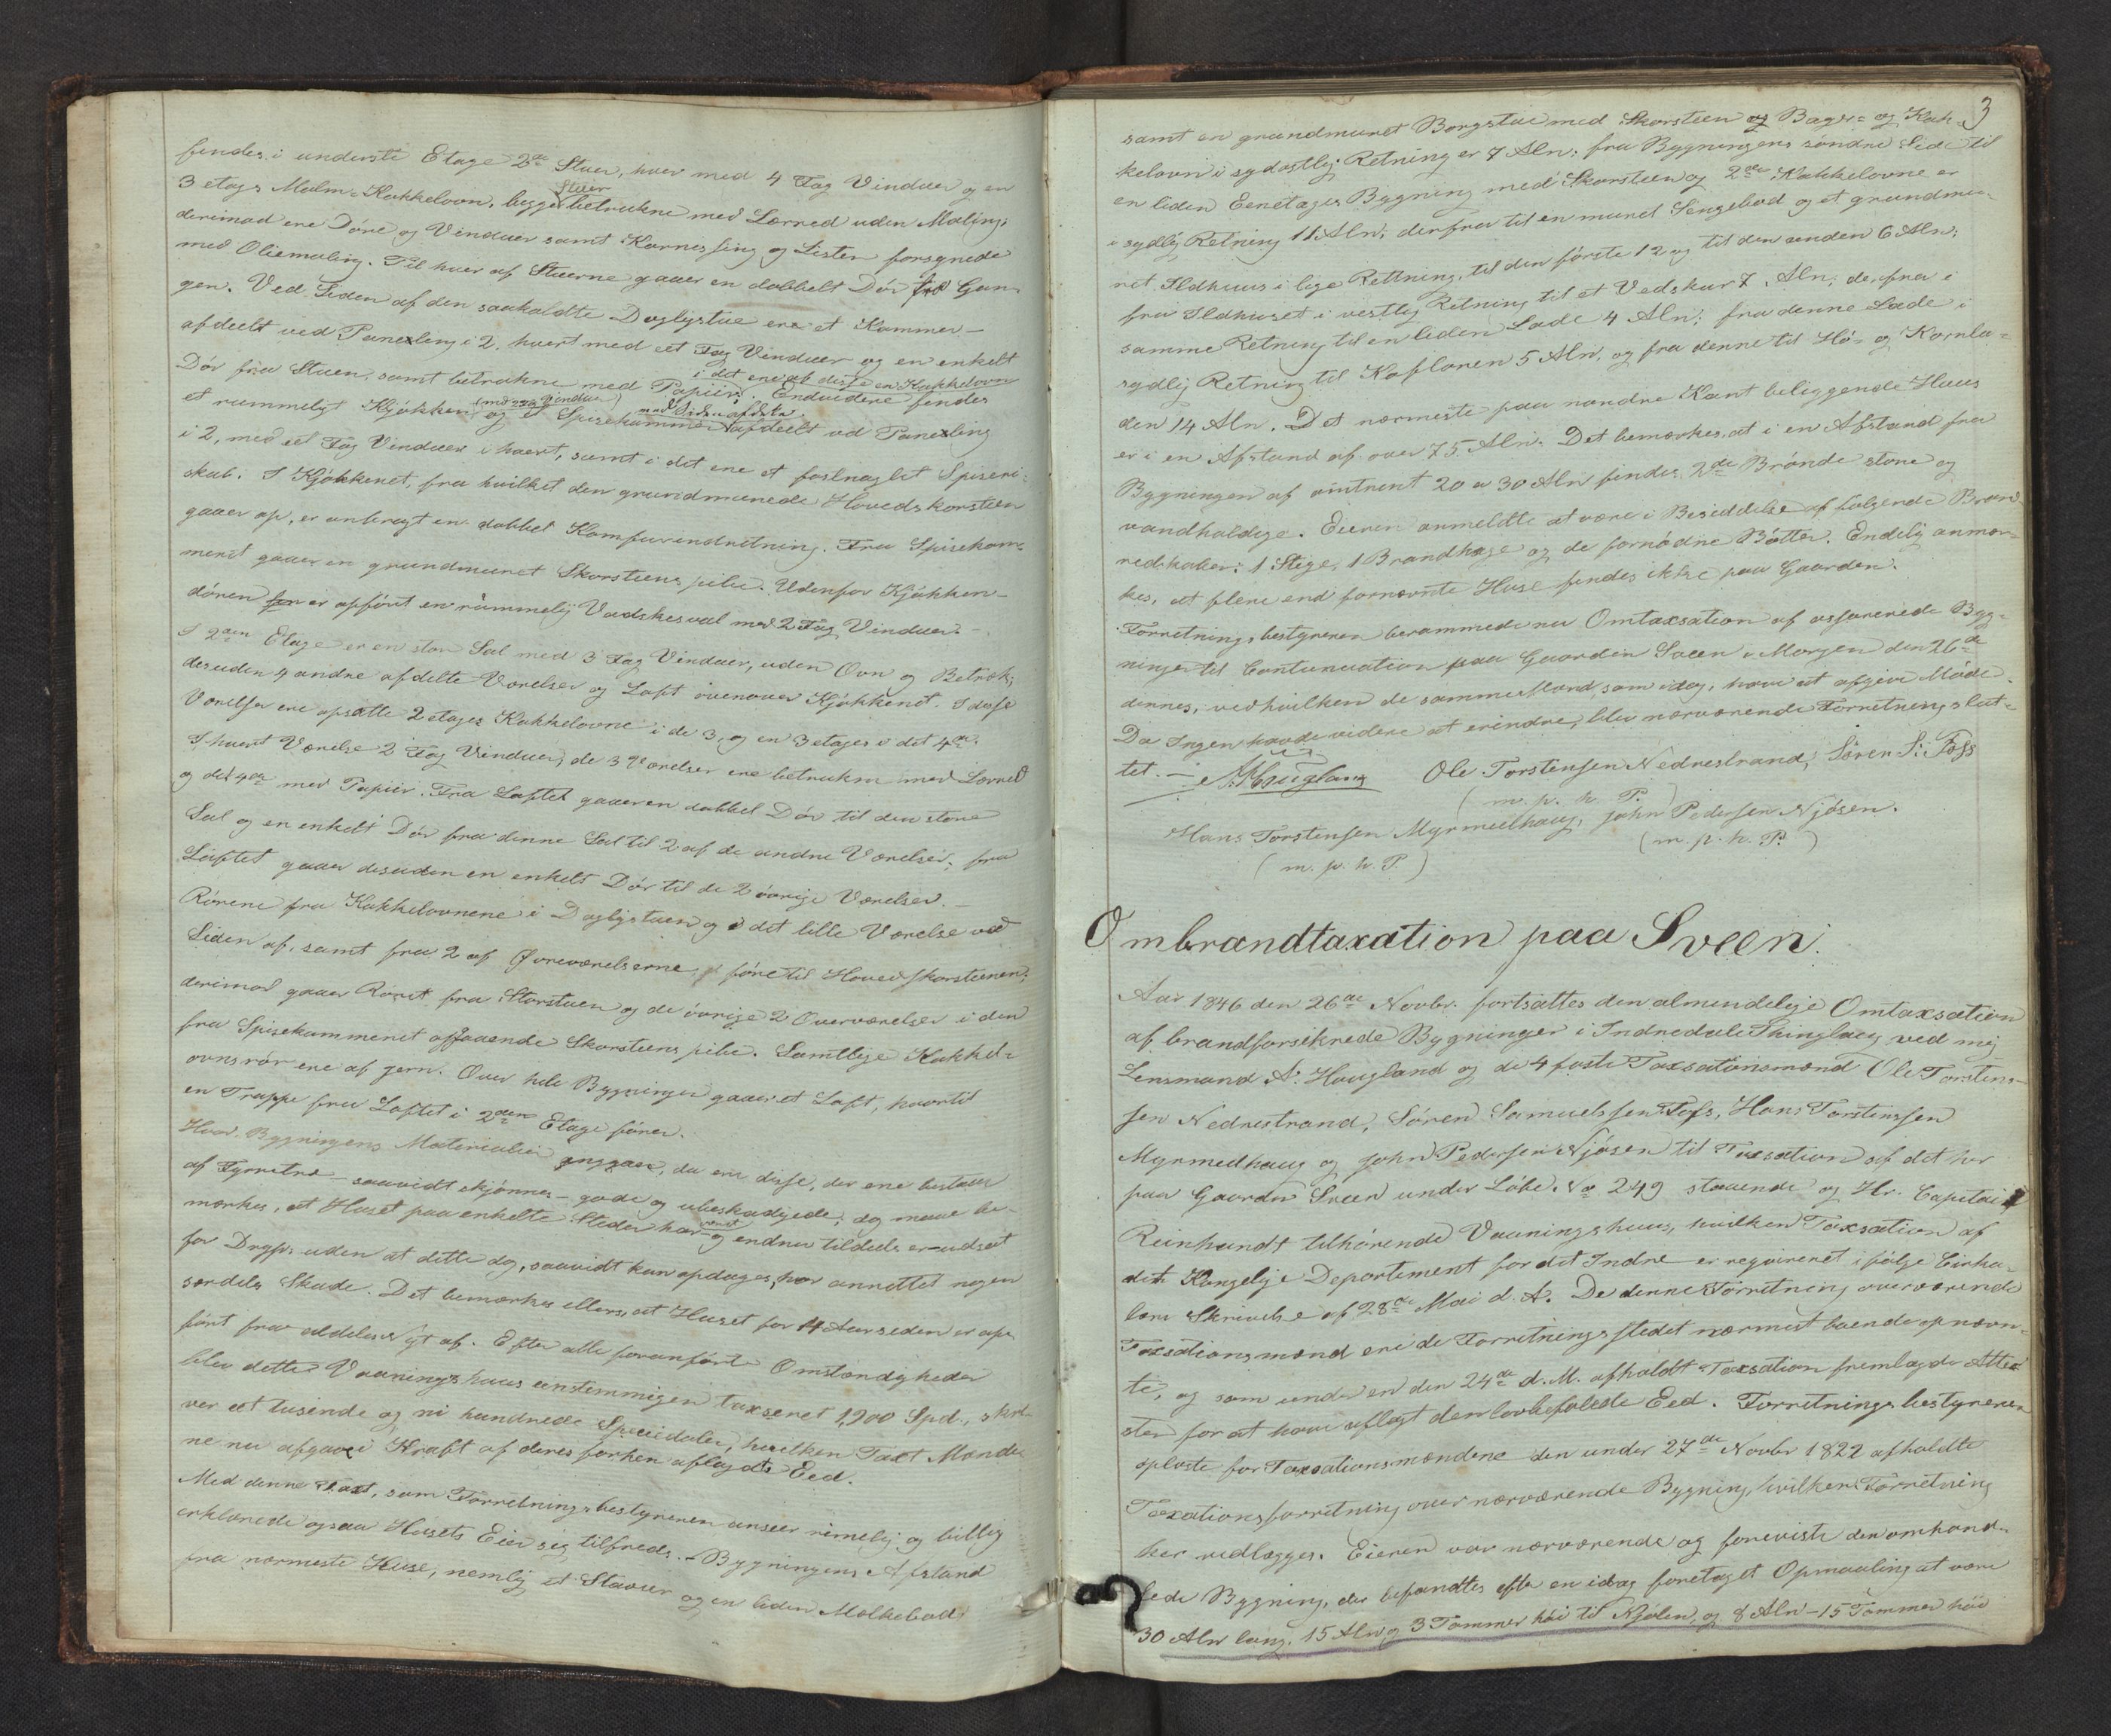 findes i underste Etage 2de Stuer, hver med 4 Fag Vinduer og en
3 etages Malm-Kakkelovn, begge Stuer betrukne med Lærred uden Maling;
derimod ere Døre og Vinduer samt Karnissing og Lister forsynede
med Oliemaling. Til hver af Stuerne gaaer en dobbelt Dør fra Gan-
gen. Ved Siden af den saakaldte Dagligstue ere et Kammer -
afdeelt ved Paneling i 2, hvert med eet Fag Vinduer og en enkelt
Dør fra Stuen, samt betrukne med Papiir, i det ene af disse en Kakkelovn. Endvidere findes
et rummeligt Kjøkken (med Vinduer) og et Spisekammer ved Siden afdette afdeelt ved Paneling
i 2, med eet Fag Vinduer i hvert, samt i det ene et fastnaglet Spiseri-
skab. I Kjøkkenet, fra hvilket den grundmurede Hovedskorsteen
gaaer op, er anbragt en dobbet Komfurindretning. Fra Spisekam-
meret gaaer en grundmuret Skorsteens pibe. Udenfor Kjøkken-
døren er opført en rummelig Vadskesval med 2 Fag Vinduer. -
I 2den Etage er en stor Sal med 3 Fag Vinduer, uden Ovn og Betræk;
desuden 4 andre afdelte Værelser og Loft ovenover Kjøkkenet. I disse
Værelser ere opsatte 2 etages Kakkelovne i de 3, og en 3 etages i det 4de.
I hvert Værelse 2 Fag Vinduer; de 3 Værelser ere betrukne med Lærred
og det 4de med Papiir. Fra Loftet gaaer en dobbel Dør til den store
Sal og en enkelt Dør fra denne Sal til 2 af de andre Værelser; fra
Loftet gaaer desuden en enkelt Dør til de 2 øvrige Værelser. -
Rørene fra Kakkelovnene i Dagligstuen og i det lille Værelse ved
Siden af, samt fra 2 af Øvreværelserne føre til Hovedskorsteenen;
derimod gaaer Røret fra Storstuen og de øvrige 2 Overværelser i den
fra Spisekammeret opgaaende Skorsteens pibe. Samtlige Kakkel-
ovnsrør ere af jern. Over hele Bygningen gaaer et Loft, hvortil
en Trappe fra Loftet i 2den Etage fører.
Hvad Bygningens Materialier angaae, da ere disse, der ere bestaaer
af Fyrretræ - saavidt skjønnes - gode og ubeskadigede; dog maae be-
mærkes, at Huset paa enkelte Steder har været og endnu tildeels er udsat
for Dryp, uden at dette dog, saavidt kan opdages, har anrettet nogen
særdeles Skade. Det bemærkes ellers, at Huset for 14 Aar siden er op-
ført fra aldeles Nyt af. Efter alle foranførte Omstændigheder
blev dette Vaaningshuus eenstemmigen taxseret 1,900 Spd., skri-
ver eet tusinde og ni hundrede Speciedaler, hvilken Taxt Mænde-
ne nu afgave i Kraft af deres forhen aflagte Eed.
Med denne Taxt, som Forretningsbestyreren anseer rimelig og billig
erklærede ogsaa Husets Eier sig tilfreds. - Bygningens Afstand
fra nærmeste Huse, nemlig et Stabur og en liden Mælkebod,
3
samt en grundmuret Borgstue med Skorsteen og Bager- og Kak-
kelovn i sydostlig Retning er 7 Aln; fra Bygningens søndre Side til
en liden Eenetages Bygning med Skorsteen og 2de Kakkelovne er
i sydlig Retning 11 Aln; derfra til en muret Sengebod og et grundmu-
ret Ildhuus i lige Rettning, til den første 12 og til den anden 6 Aln;
fra Ildhuset i vestlig Retning til et Vedskur 7 Aln; derfra i
samme Retning til en liden Lade 4 Aln; fra denne Lade i
sydlig Retning til Kofloren 5 Aln, og fra denne til Hø- og Kornla-
den 14 Aln. Det nærmeste paa nordre Kant beliggende Huus
er i en Afstand af over 75 Aln. Det bemærkes, at i en Afstand fra
Bygningen af omtrent 20 a 30 Aln findes 2de Brønde store og
vandholdige. Eieren anmeldte at være i Besiddelse af følgende Brand-
redskaber: 1 Stige, 1 Brandhage og de fornødne Bøtter. Endelig anmær-
kes, at flere end fornævnte Huse findes ikke paa Gaarden.
Forretningsbestyreren berammede nu Omtaxsation af assurerede Byg-
ninger til Continuation paa Gaarden Sveen i Morgen den 26de
dennes, ved hvilken de samme Mænd, som idag, have at afgive Møde.
Da Ingen havde videre at erindre, blev nærværende Forretning slut-
tet. - A. Hougland Ole Torstensen Nedrestrand, Søren S. Foss
(m. p. h. P.)
Hans Torstensen Myrmelhaug, John Pedersen Njøsen.
(m. p. h. P.) (m. p. h. P.)
Ombrandtaxation paa Sveen.
Aar 1846 den 26de Novbr. fortsattes den almindelige Omtaxsation
af brandforsikrede Bygninger i Indredale Thinglaug ved mig
Lensmand A. Hougland og de 4 faste Taxsationsmænd Ole Torsten-
sen Nedrestrand, Søren Samuelssen Foss, Hans Torstenssen
Myrmelhaug og John Pedersen Njøsen til Taxsation af det her
paa Gaarden Sveen under Løbe No 249 staaende og Hr. Capitai
Reinhardt tilhørende Vaaningshuus, hvilken Taxsation af
det Kongelige Departiment for det Indre er reqvireret ifølge Cirku-
lære Skrivelse af 28de Mai d. A. De denne Forretning overværende
Taxsationsmænd ere de Forretningsstedet nærmest boende opnævn-
te, og som under en den 24de d. M. afholdt Taxsation fremlagde Attes-
ter for at have aflagt den lovbefalede Eed. Forretningsbestyreren
oplæste for Taxsationsmændene den under 27de Novbr 1822 afholdte
Taxationsforretning over nærværende Bygning, hvilken Forretning
her vedlægges. Eieren var nærværende og foreviste den omhand-
lede Bygning, der befandtes efter en idag foretaget Opmaaling at være
30 Aln lang, 15 Aln og 3 Tommer høi til Kjølen, og 8 Aln - 15 Tommer høi